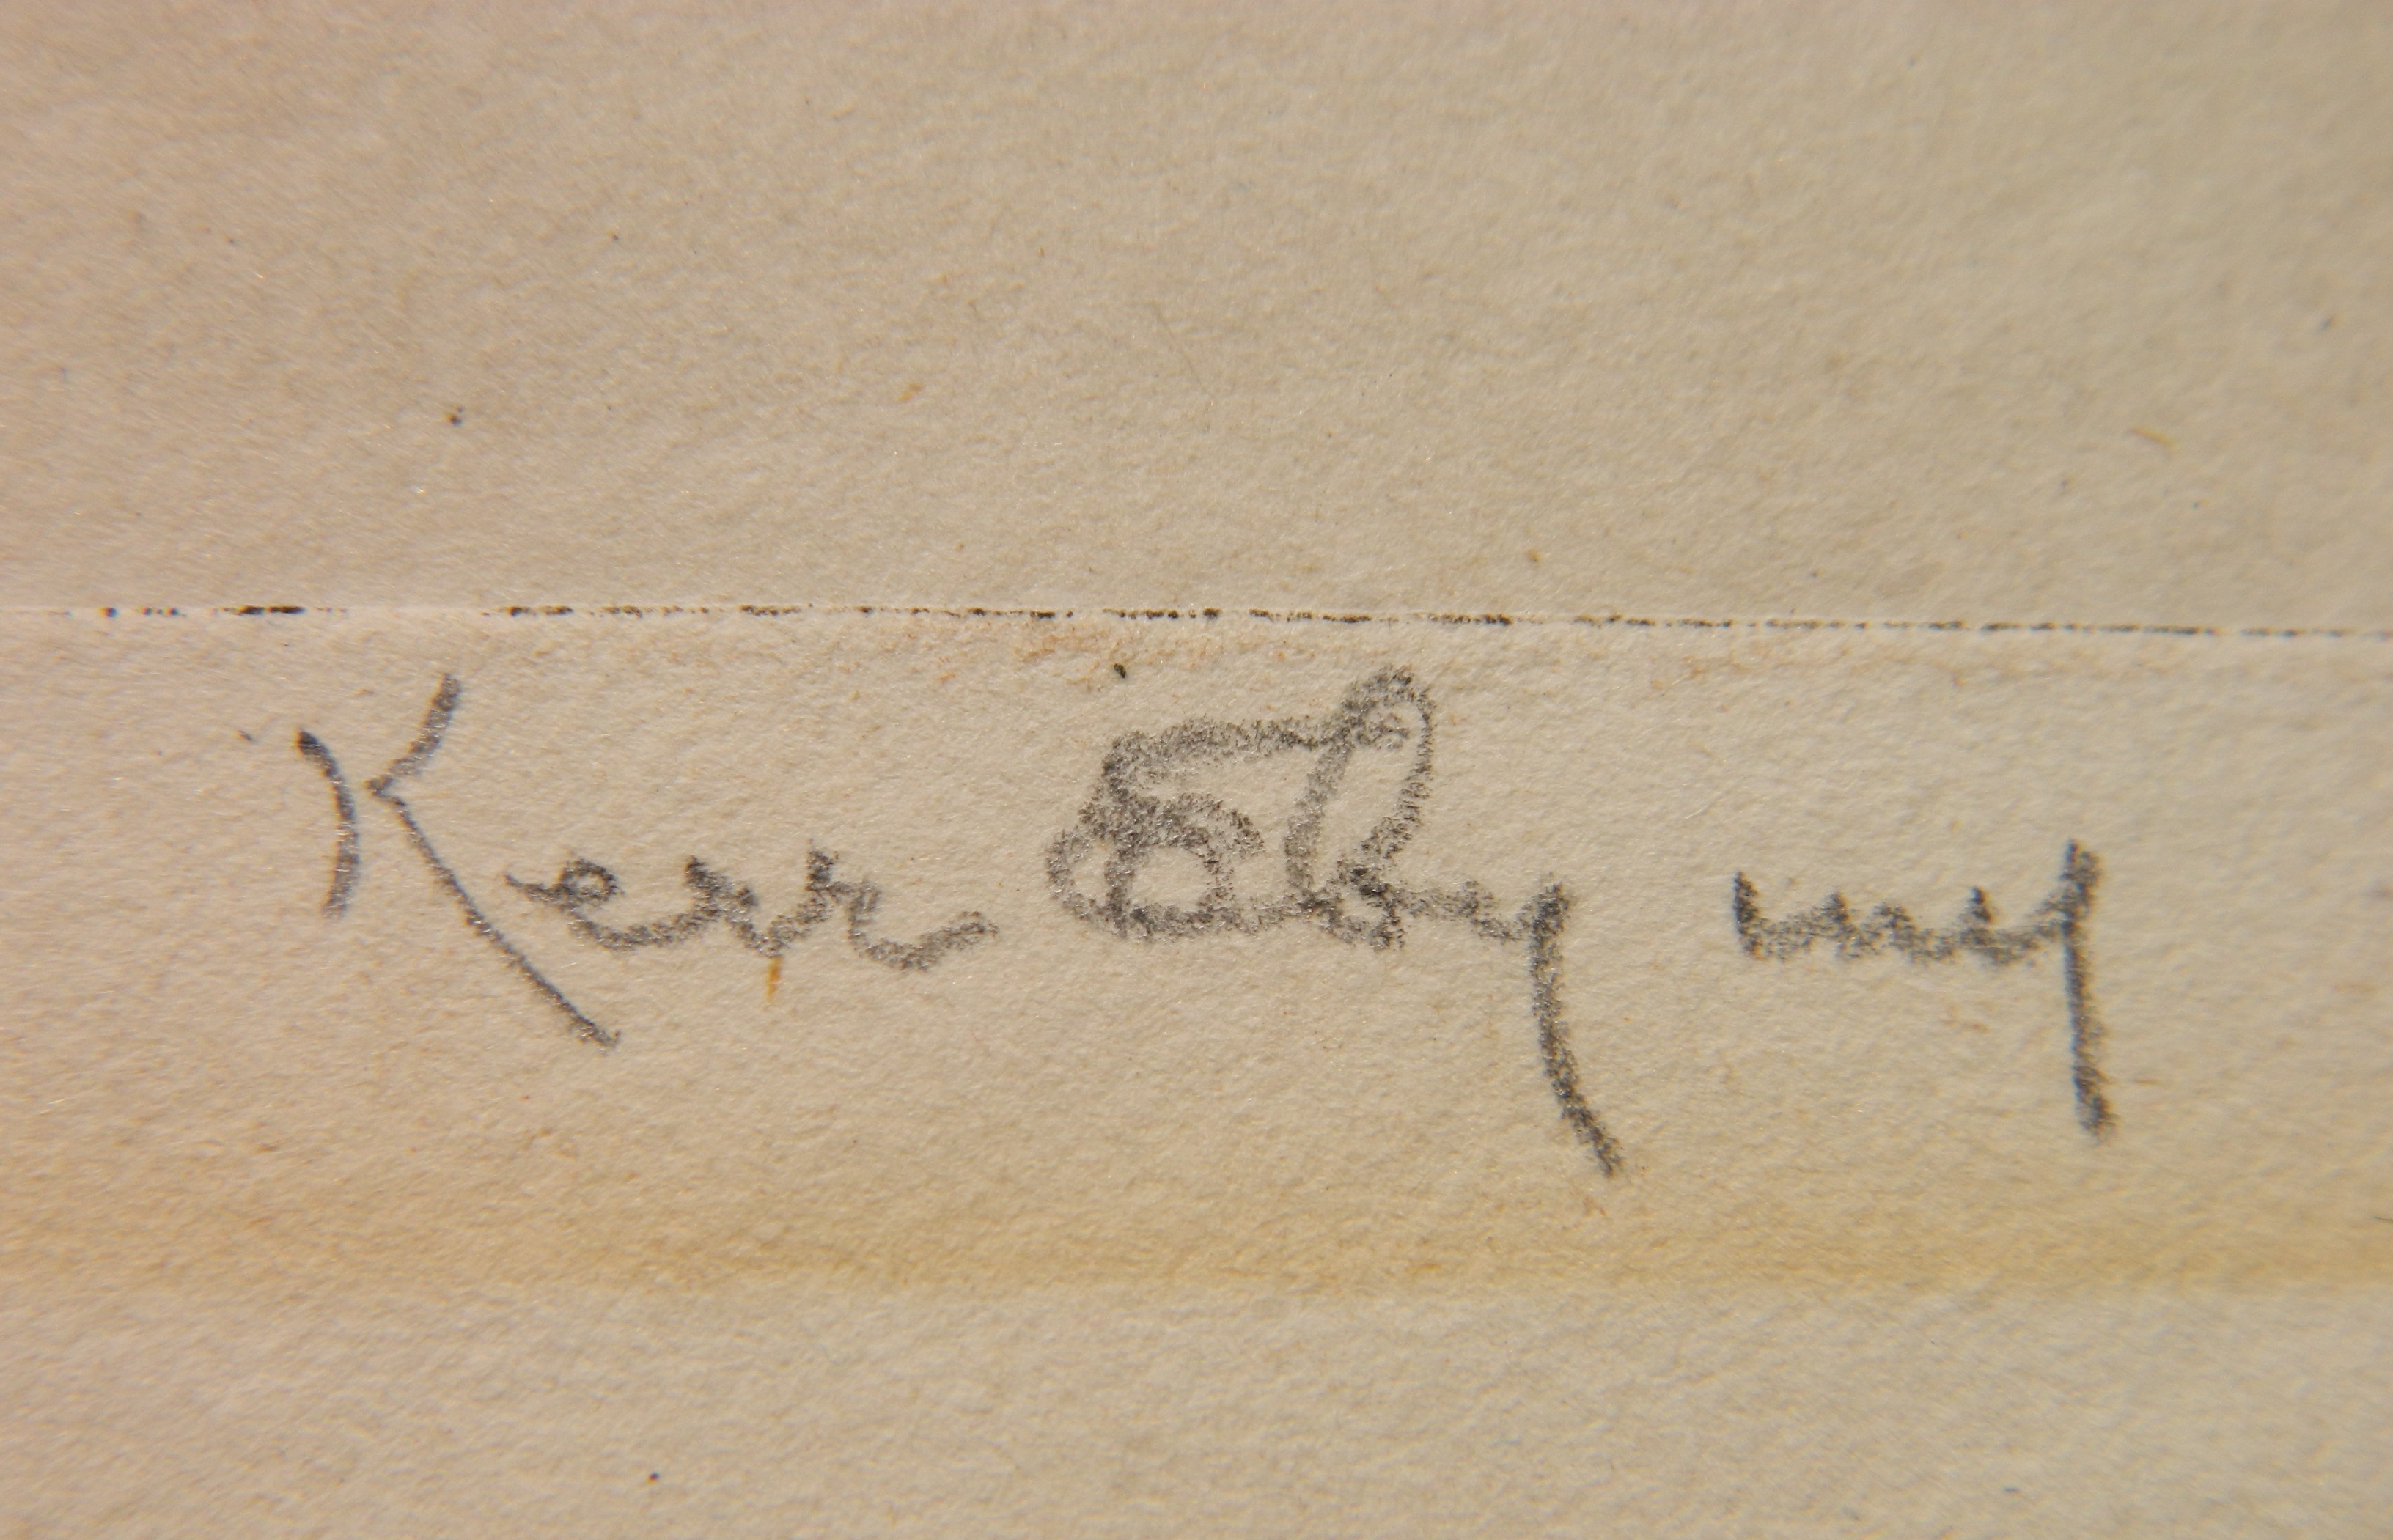 Kerr Eby imp